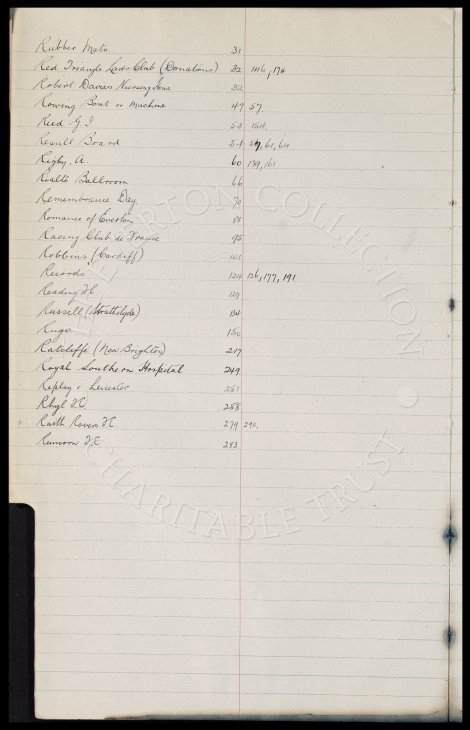 Rubber Mats 31
Red Triangle Lads Club (Donations) 32 146, 174
Robert Davies Nursing Home 32
Rowing Boat or Machine 47 57
Reed G. J 53 154
Result Board 54 57, 61, 64
Rigby, A 60 139, 161
Rialto Ballroom 66
Remembrance Day 70
Romance of Everton 88
Racing Club de France 95
Robbins (Cardiff) 101
Records 124 126, 177, 191
Reading F.C. 129
Russell (Strathclyde) 134
Rugs 150
Ratcliffe (New Brighton) 247
Royal Southern Hospital 249
Replay v Leicester 251
Rhyl F.C. 258
Raith Rovers F.C. 279 290,
Runcorn F.C. 283
EVERTON COLLECTION
CHARITABLE TRUST